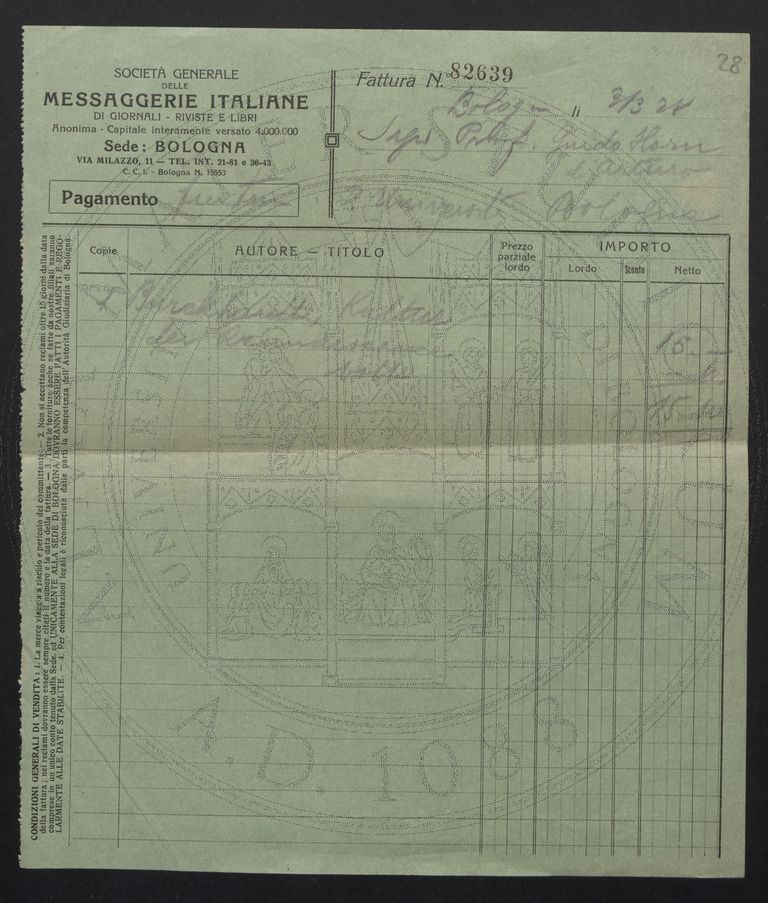 28
SOCIETÀ GENERALE
DELLE
MESSAGGERIE ITALIANE
DI GIORNALI - RIVISTE E LIBRI
Anonima - Capitale interamente versato 4.000.000
Sede: BOLOGNA
VIA MILAZZO, 11 — TEL. INT. 21-81 e 36-43
C. C. I. - Bologna N. 15553
Pagamento
Fattura N. 82639
Bologna li 3/3 28
Prof. Guido Horn
Arturo
R Università Bologna
Copie
AUTORE — TITOLO
Prezzo parziale lordo
IMPORTO
Lordo
Sconto
Netto
1 Burckhardt, Kultur
der Renaissance
15.—
CONDIZIONI GENERALI DI VENDITA: 1. La merce viaggia a rischio e pericolo del committente. — 2. Non si accettano reclami oltre 15 giorni dalla data
della fattura; nei reclami dovranno essere sempre citati il numero e la data della fattura. — 3. Tutte le forniture anche se fatte da nostre filiali saranno
comprese in un unico conto tenuto dalla Sede, ed UNICAMENTE ALLA SEDE DI BOLOGNA DOVRANNO ESSERE FATTI I PAGAMENTI E REGO-
LARMENTE ALLE DATE STABILITE. — 4. Per contestazioni legali è riconosciuta dalle parti la competenza dell'Autorità Giudiziaria di Bologna.
ALMA MATER STUDIORUM
UNIVERSITÀ DI BOLOGNA
A.D. 1088